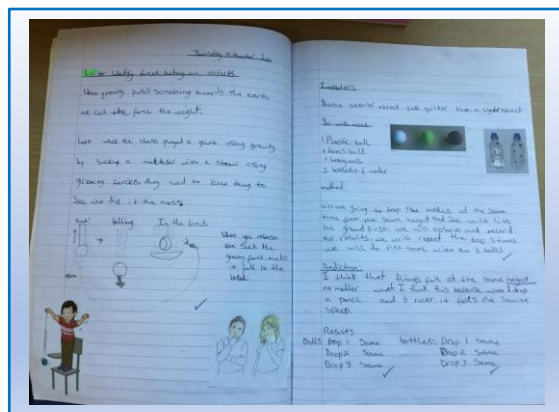 Lo: to identify forces acting on objects
When gravity pulls something towards the earth
we call the force the weight.
Last the class played a game using gravity
by sucking a malteser with a straw using
forces they had to keep doing to
See who did it the most.
Suck!
falling
In the bowl
When you release
the suck the
force makes
it fall to the
bowl.
Does a heavier object fall quicker than a lighter object
You will need
1 Plastic ball
1 tennis ball
1 heavy ball
2 bottles of water
method
We are going to drop the bottles at the same
time from the same height and see which hits
the ground first. We will observe and record
the results. We will repeat the drop 3 times
we will do this same with the 3 balls
Prediction
I think that things fall at the same height
no matter what I think this because when I drop
a pencil and a ruler it falls the same
speed.
Results
Balls Drop 1 Same bottles: Drop 1 Same
Drop 2 Same Drop 2 Same
Drop 3 Same Drop 3 Same